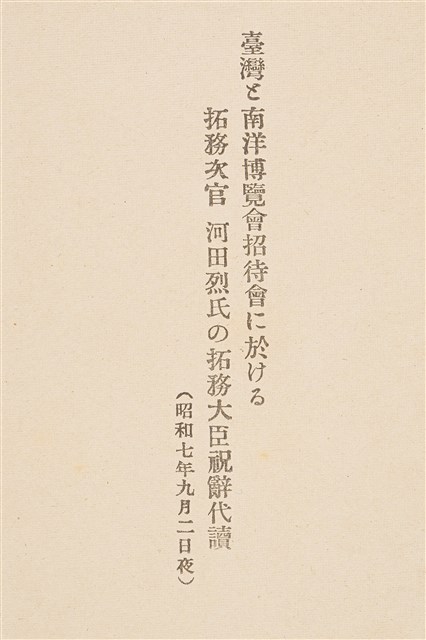 臺灣と南洋博覽會招待會に於ける
拓務次官 河田烈氏の拓務大臣祝辭代讀
（昭和七年九月二日夜）